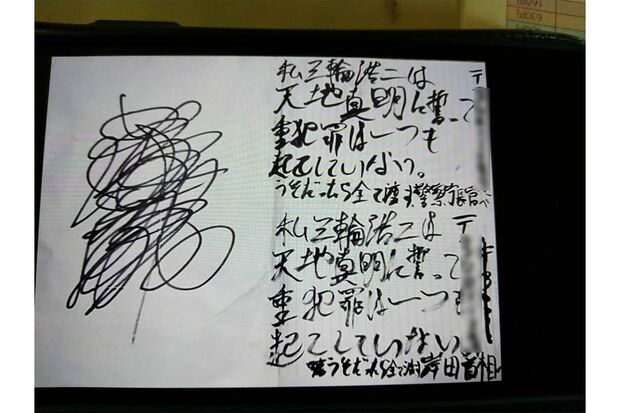 私三輪浩二は
天地真明に誓って
重犯罪は一つも
起こしていない。
うそだったら全て渡す警察長官へ
私三輪浩二は
天地真明に誓って
重犯罪は一つも
起こしていない
うそだったら全て 岸田首相
〒
〒